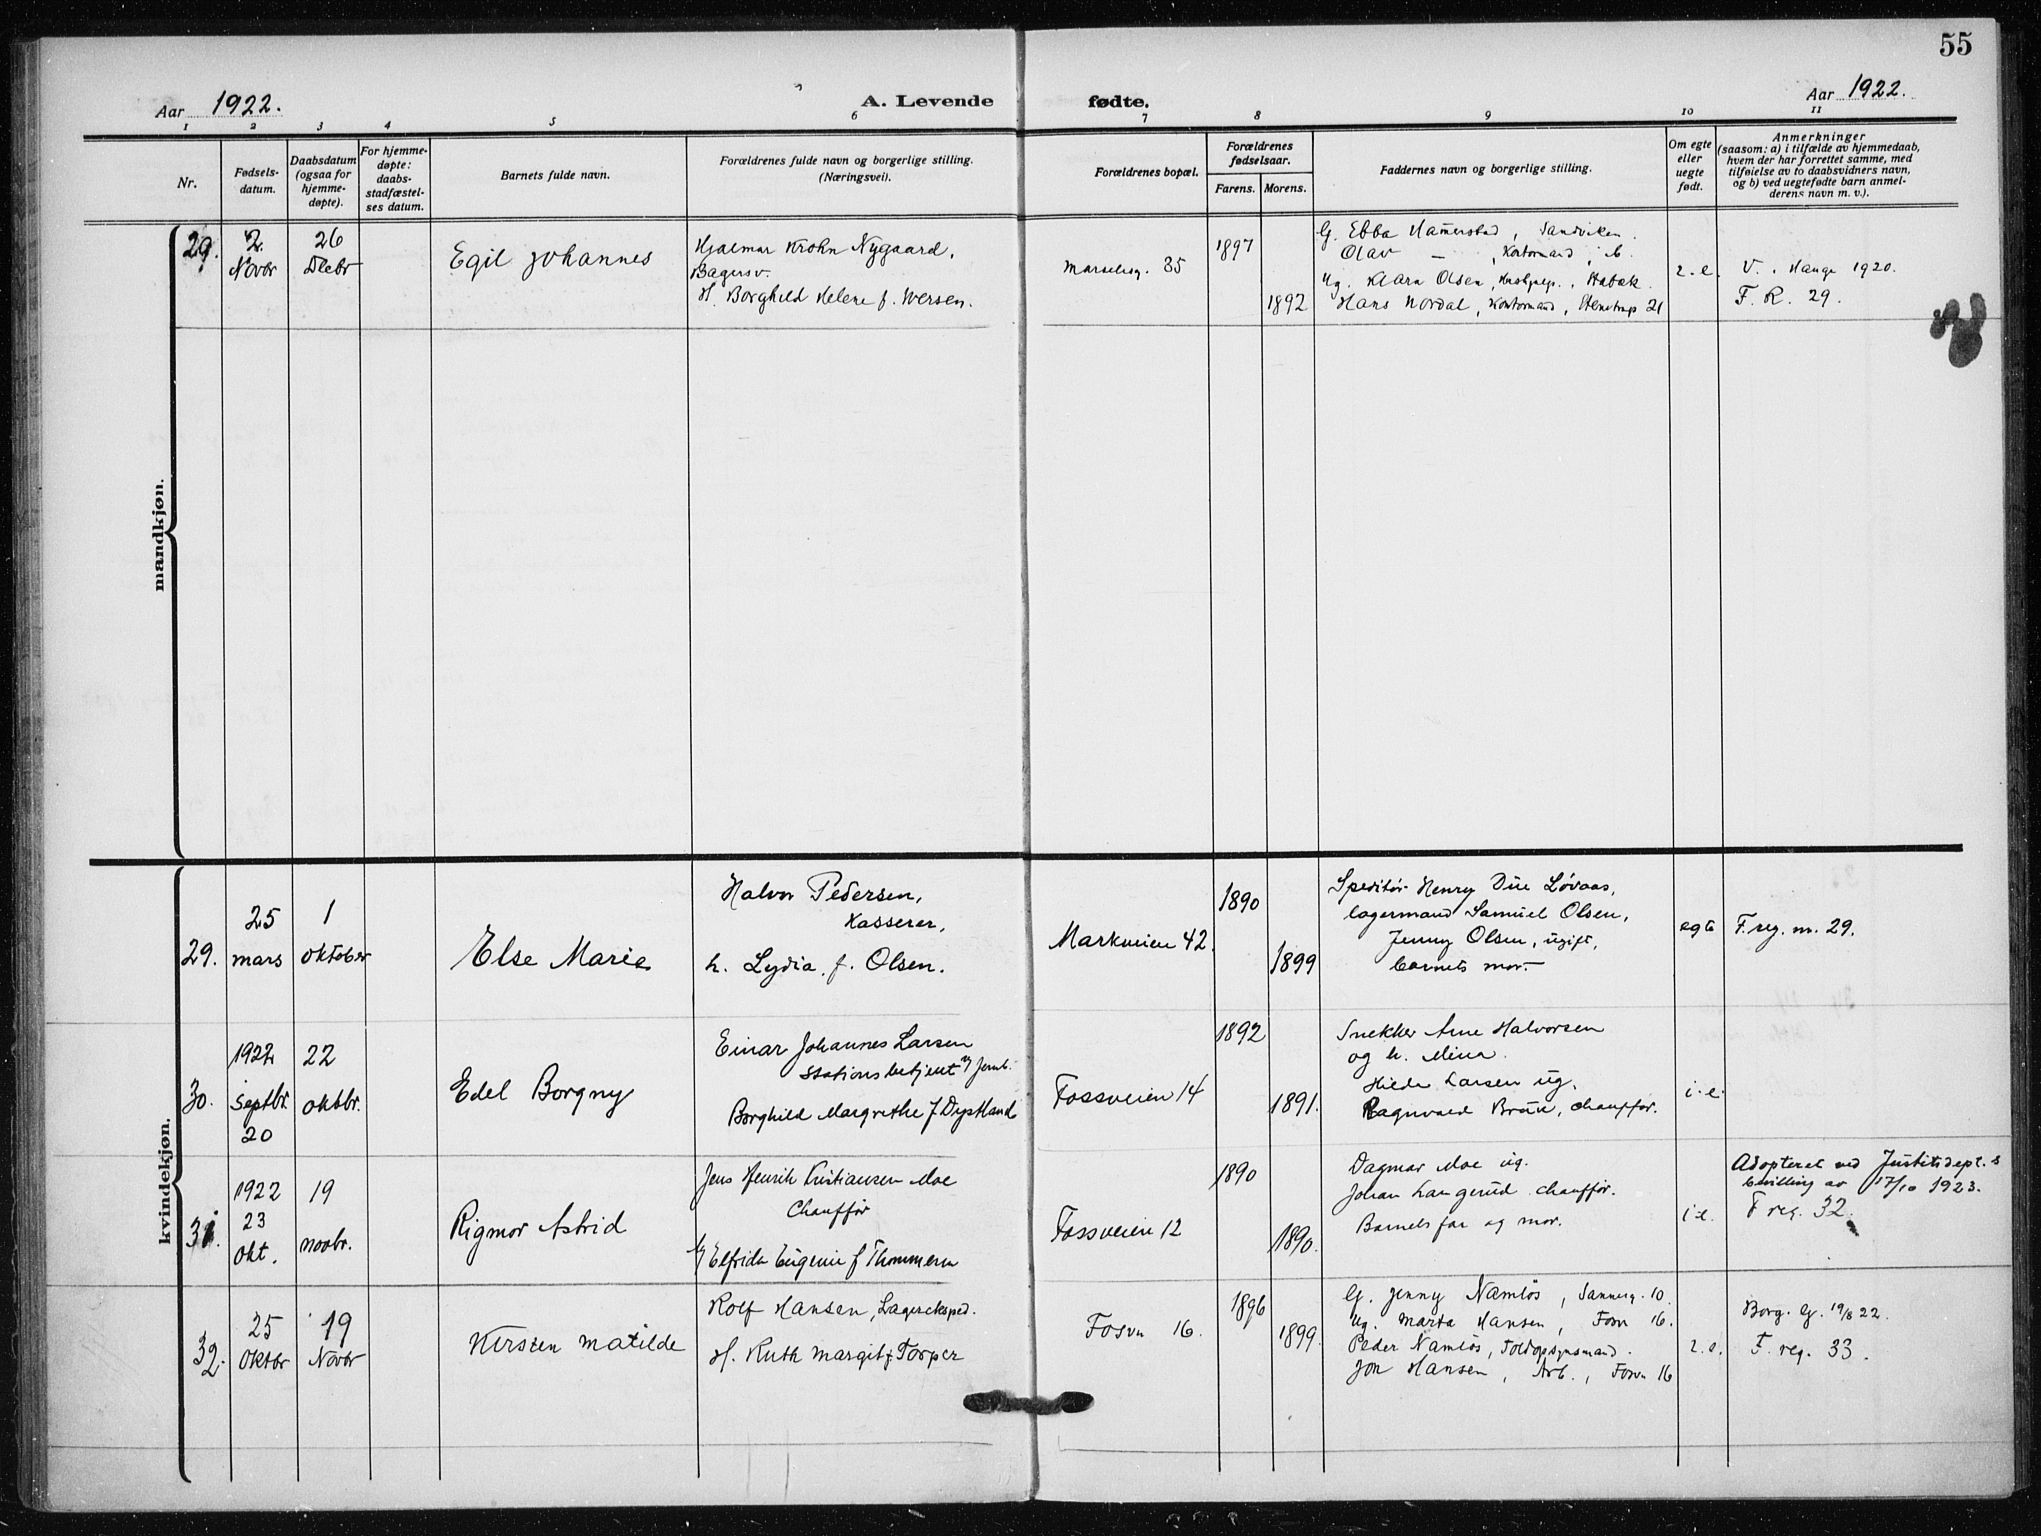 55
Aar 1922. A. Levende fødte. Aar 1922.
1 2 3 4 5 6 7 8 9 10 11
Nr.
Fødsels-
datum.
Daabsdatum
(ogsaa for
hjemme-
døpte).
For hjemme-
døpte:
daabs-
stadfæstel-
ses datum.
Barnets fulde navn.
Forældrenes fulde navn og borgerlige stilling.
(Næringsvei).
Forældrenes bopæl.
Forældrenes
fødselsaar.
Farens. Morens.
Faddernes navn og borgerlige stilling.
Om egte
eller
uegte
født.
Anmerkninger
(saasom: a) i tilfælde av hjemmedaab,
hvem der har forrettet samme, med
tilføielse av to daabsvidners navn,
og b) ved uegtefødte barn anmel-
derens navn m. v.).
mandkjøn.
29.
2
Novbr
26
Decbr
Egil Johannes
Hjalmar Krohn Nygaard,
Bagersv.
H. Borghild Helene f. Iversen.
Marselisg. 35
1897
1892
G. Ebba Hamerstad, Sandviken.
Olav — , Kontormand, ib.
Ug. Klara Olsen, , Stabæk.
Hans Nordal, Kontormand, 21
2. e.
V. Hauge 1920.
F. R. 29.
kvindekjøn.
29.
25
mars
1
oktober
Else Marie
Halvor Pedersen,
Kasserer,
h. Lydia f. Olsen.
Markveien 42.
1890
1899
Speditør Henry Due Løvaas,
lagermand Samuel Olsen,
Jenny Olsen, ugift,
barnets mor.
egte
F. reg. nr. 29.
30.
1922
Septbr.
20
22
oktbr.
Edel Borgny
Einar Johannes Larsen
Stationsbetjent v/ Jernb.
Borghild Margrethe f Dystland
Fossveien 14
1892
1891.
Snekker Arne Halvorsen
og h. Mina.
Hilda Larsen ug.
Ragnvald Bruu, chauffør.
i. e.
31.
1922
23
okt.
19
novbr.
Rigmor Astrid
Jens Henrik Kristiansen Moe
Chauffør
Elfrida Eugenie f Thommesen
Fossveien 12
1890
1890.
Dagmar Moe ug.
Johan Langerud chauffør.
Barnets far og mor.
i e.
Adopteret ved Justitsdept.s
bevilling av 17/10 1923.
F reg. 32.
32.
25
Oktbr
19
Novbr
Kirsten Matilde
Rolf Hansen, Lagereksped.
H. Ruth Margit f Torper
Fosvn 16.
1896
1899.
G. Jenny Namløs, Sannerg. 10.
Ug. Marta Hansen, Fosvn 16.
Peder Namløs, Toldopsynsmand.
Jon Hansen, Arb., Fosvn 16
2. e.
Borg. G. 19/8 22.
F. reg. 33.